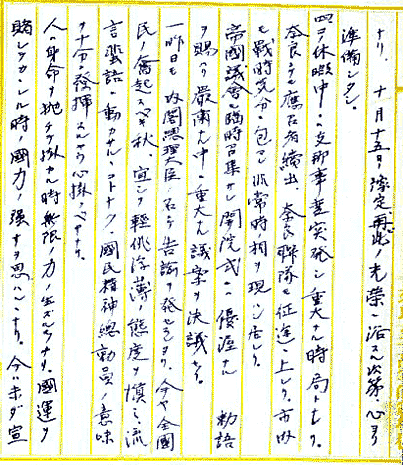 ナリ、十月十五日ヲ豫定シ再ビ光榮ニ浴スル次第心ヨリ
準備シタシ。
四、休暇中ニ支那事変突発シ重大ナル時局トナレリ。
奈良ニテモ應召者續出、奈良聯隊モ征途ニ上レリ。市内
モ戦時気分ニ包マレ非常時ノ相ヲ現ハシ居レリ。
帝國議會モ臨時召集サレ開院式ニハ優渥ナル 勅語
ヲ賜ハリ嚴肅ナル中ニ重大ナル議案ヲ決議セリ。
一昨日モ内閣総理大臣ノ名ヲ 告諭ヲ発セラレタリ、今ヤ全國
民ノ奮起スベキ秋、宜シク輕佻浮薄ノ態度ヲ慎ミ流
言蜚語ニ動カサルヽコトナク國民精神總動員ノ意味
ヲ十分発揮スルヤウ心掛ベキナリ。
人ハ身命ヲ抛チテ掛カル時無限ノ力ヲ生ズルナリ。國運ヲ
賭シテカヽレル時ノ國力ノ強サヲ思ハシムナリ。今ハ未ダ宣